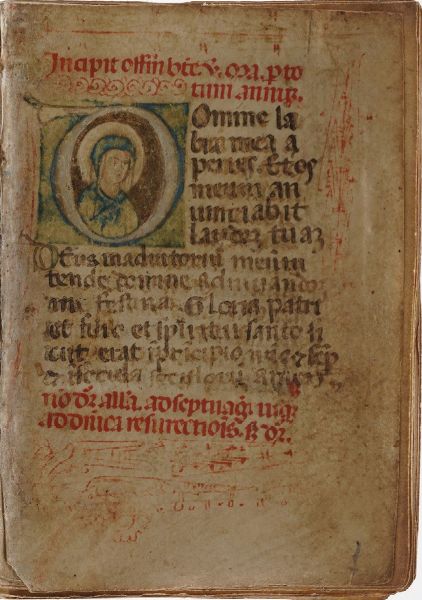 Incipit offm bte v. ma. p to
tum annuz.
Domine la
bia mea a
peries. Et os
meum an
untiabit
laudez tuaz
Deus in adiutoriu meum
tende domine ad iuuando
me festina. Gloria patri
et filio et spiritui santo si
cut erat in principio
et in secula seculorum amen
ad septuagi
ad dnica resurectiois.